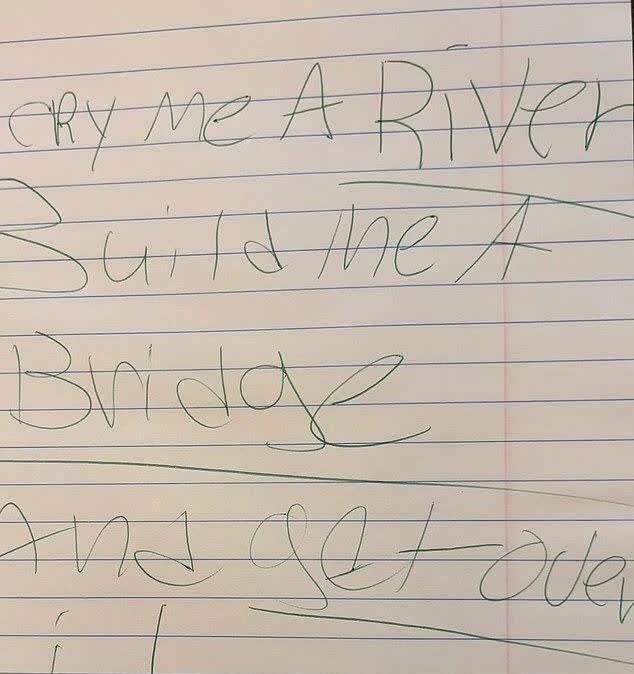 CRY Me A River
Build Me A
Bridge
And get over
it